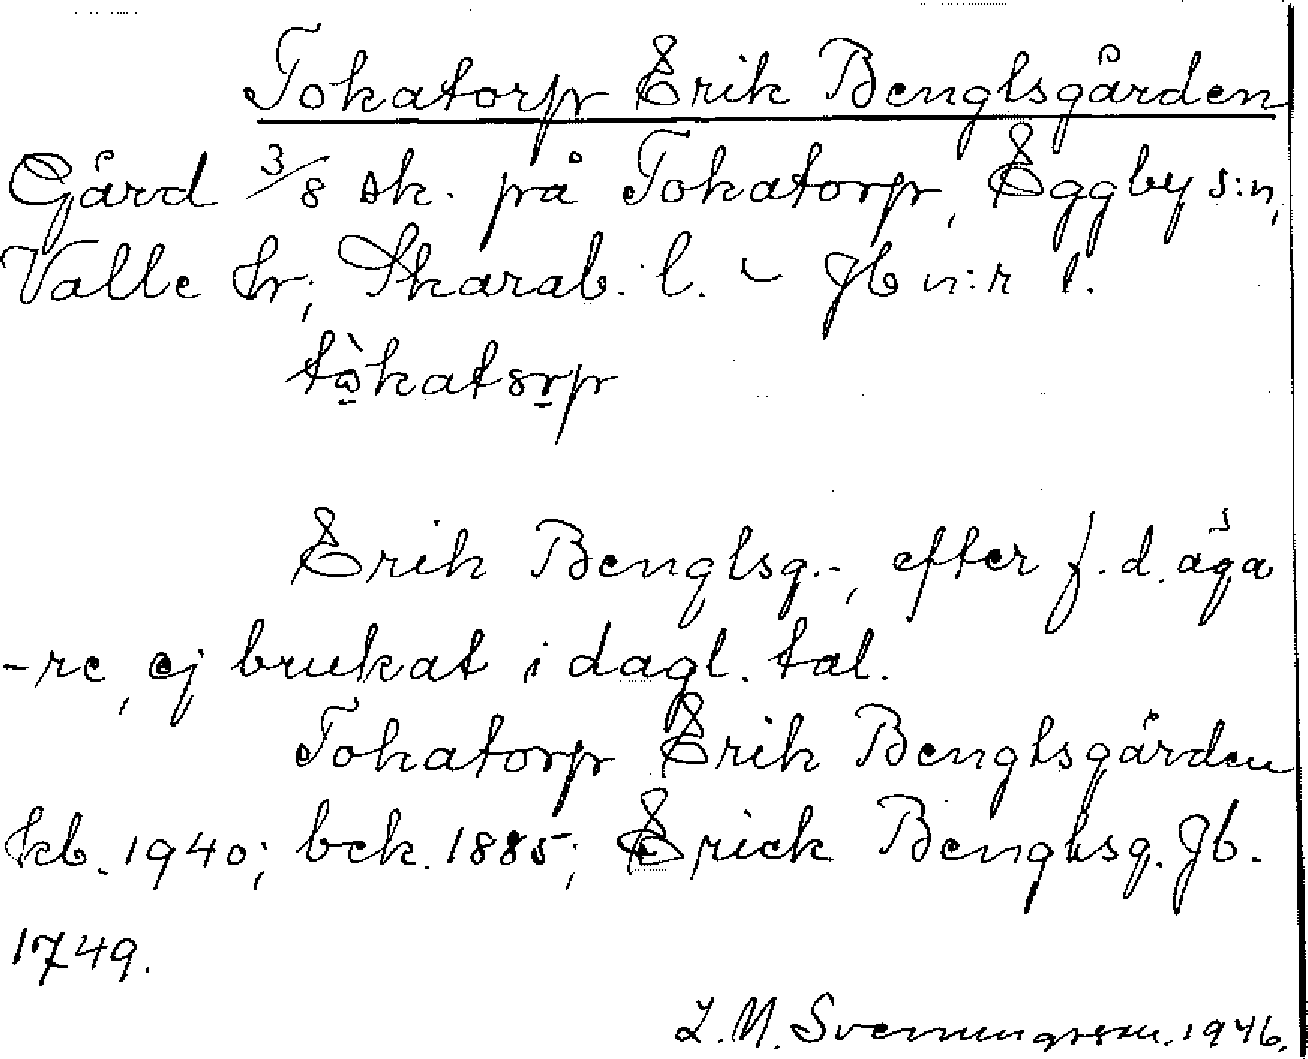 Tokatorp Erik Bengtsgården
Gård 3/8 sk. på Tokatorp, Eggby s:n,
Valle hr, Skarab. l. – Jb n:r 1.
tòkatorp
Erik Bengtsg.-, efter f.d. äga
-re, ej brukat i dagl. tal.
Tokatorp Erik Bengtsgården
kb. 1940; bek. 1885; Erick Bengtsg. Jb.
1749.
L. M. Svenungsson. 1946.